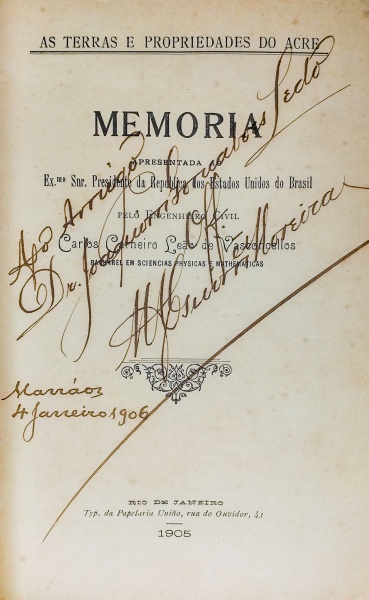 AS TERRAS E PROPRIEDADES DO ACRE
MEMORIA
APRESENTADA AO
Ex.mo Snr. Presidente da Republica dos Estados Unidos do Brasil
PELO ENGENHEIRO CIVIL
Carlos Carneiro Leão de Vasconcellos
BACHAREL EM SCIENCIAS PHYSICAS E MATHEMATICAS
Ao Amigo
Dr. Joaquim Gonçalves Ledo
Off.
Moreira
Manáos
4 Janeiro 1906
RIO DE JANEIRO
Typ. da Papelaria União, rua do Ouvidor, 43
1905